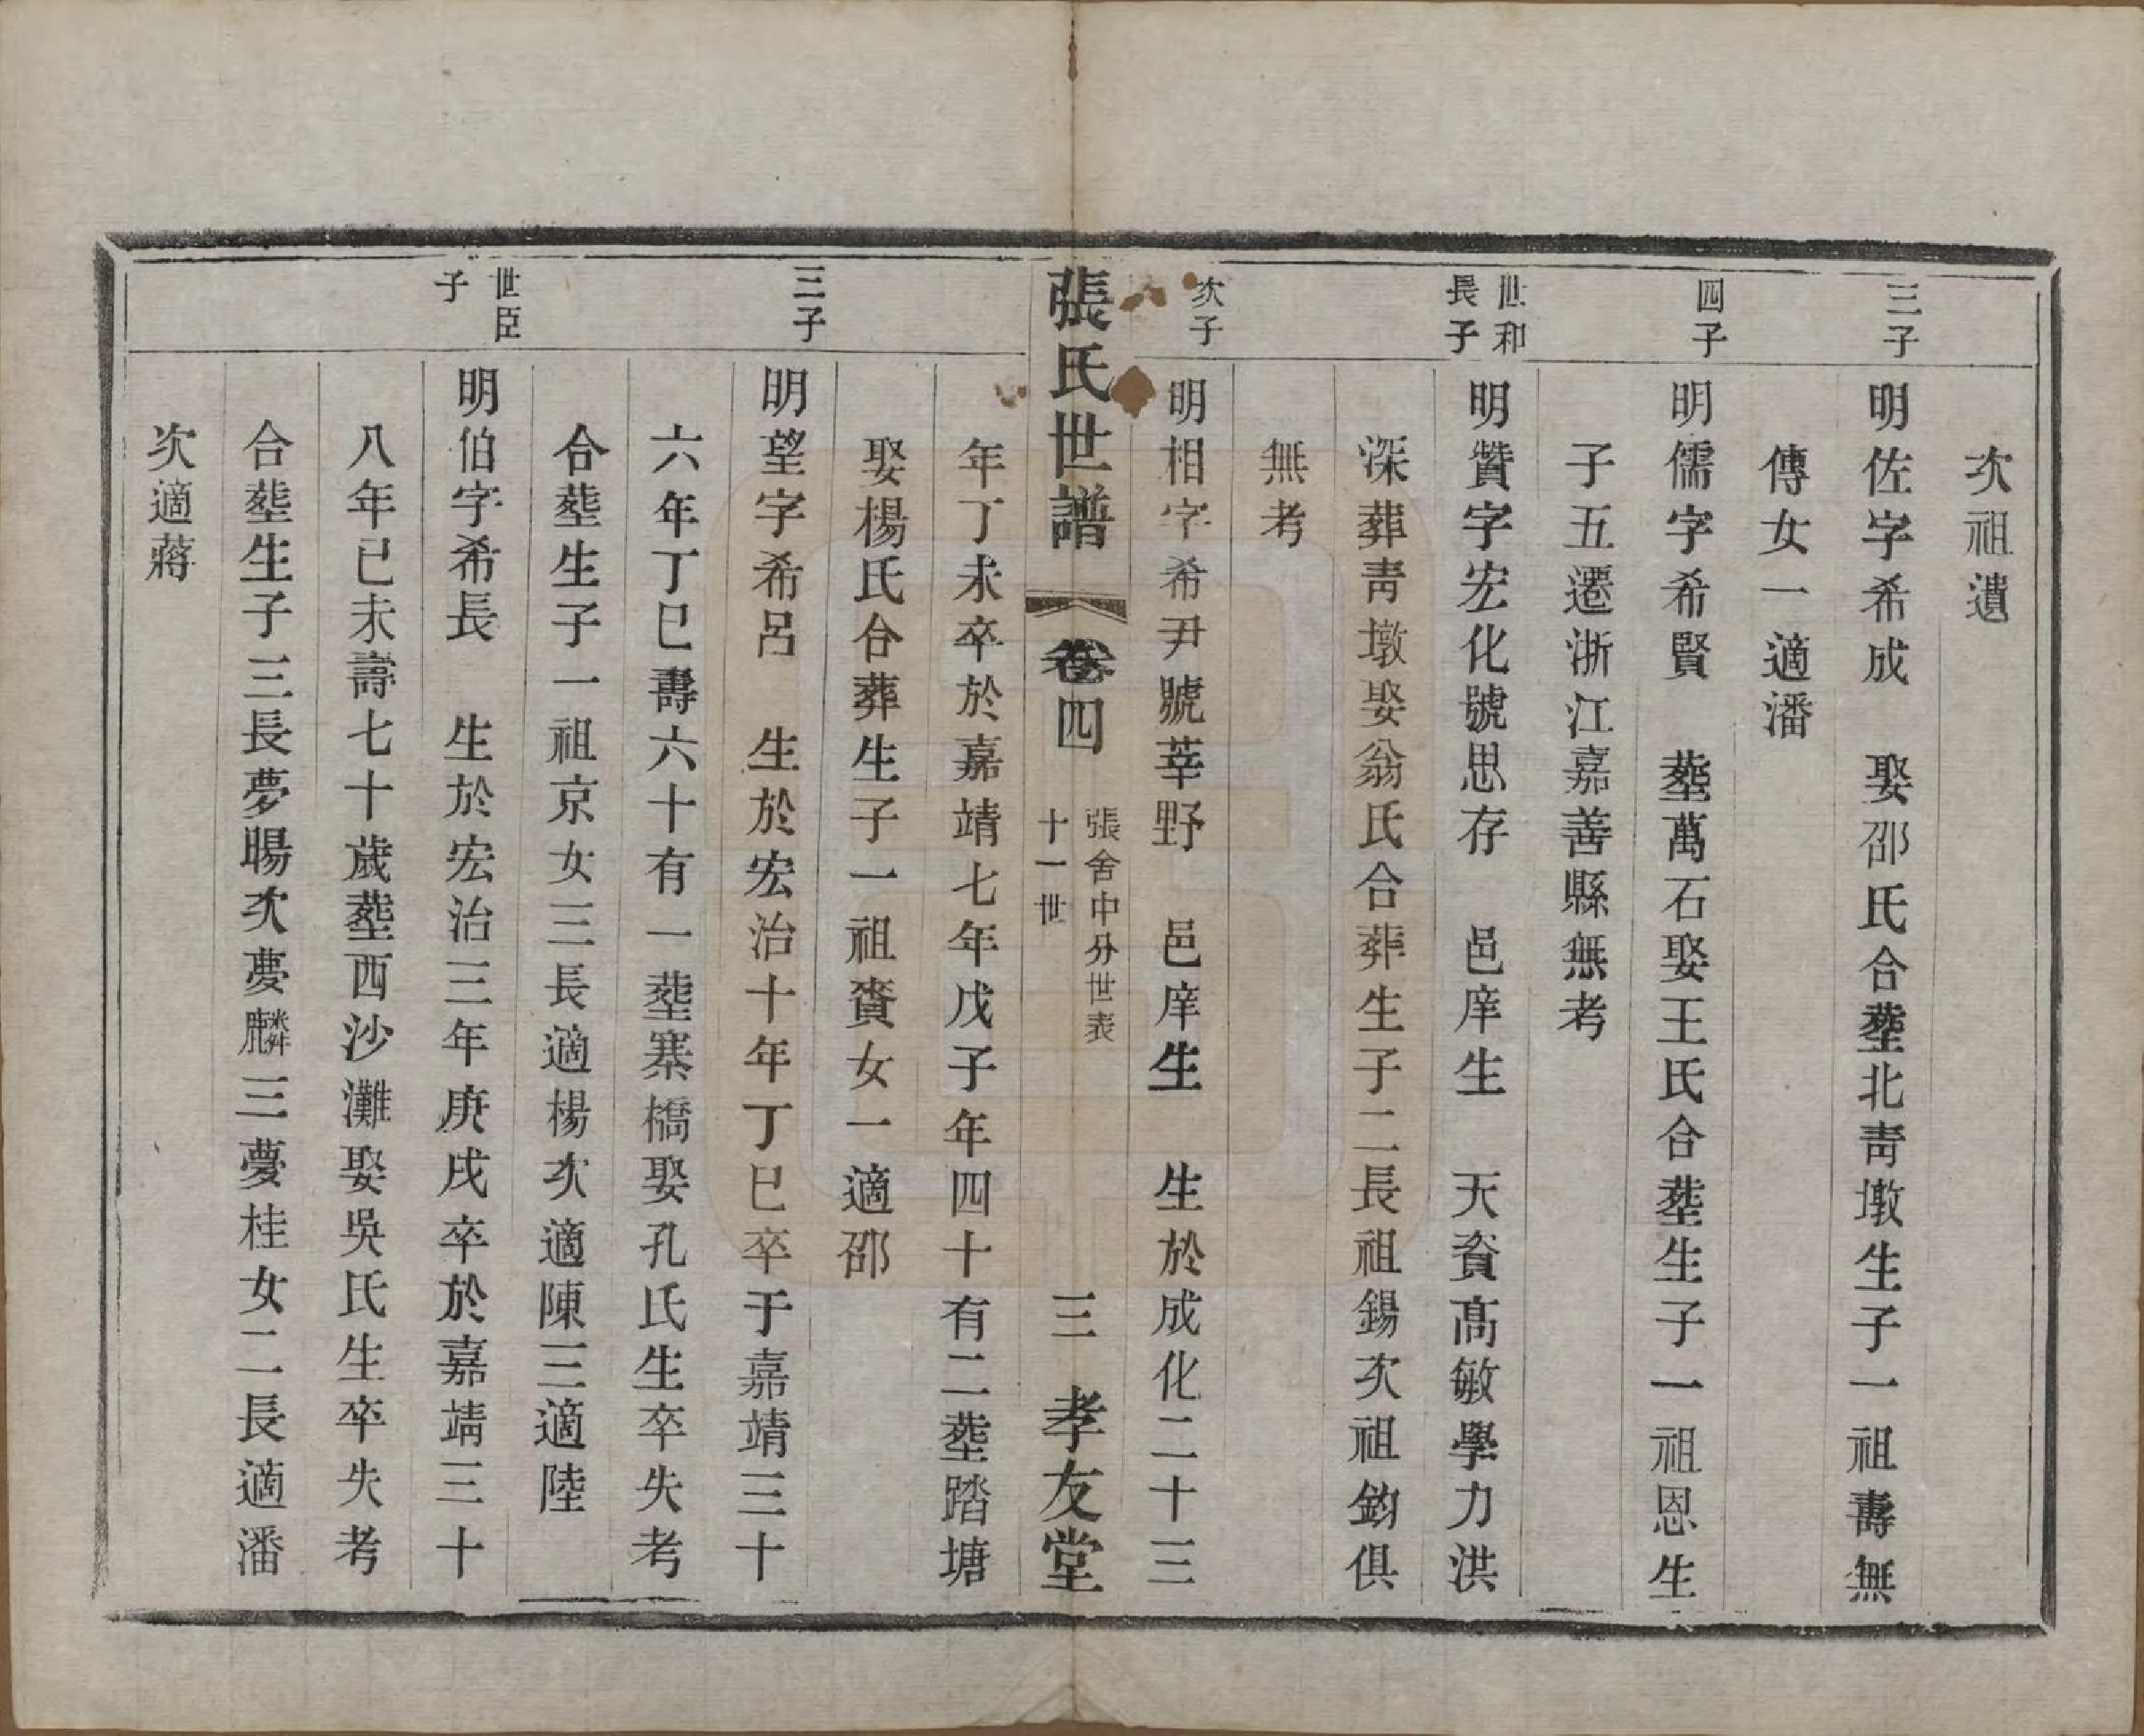 次祖遺
三子
明佐字希成　娶邵氏合塟北青墩生子一祖壽無
傳女一適潘
四子
明儒字希賢　塟萬石娶王氏合塟生子一祖恩生
子五遷浙江嘉善縣無考
世和
長子
明贊字宏化號思存　邑庠生　天資高敏學力洪
深葬青墩娶翁氏合葬生子二長祖錫次祖鈞俱
無考
次子
明相字希尹號莘野　邑庠生　生於成化二十三
張氏世譜　卷四
張舍中分世表
十一世
三　孝友堂
年丁未卒於嘉靖七年戊子年四十有二塟踏塘
娶楊氏合葬生子一祖賚女一適邵
三子
明望字希呂　生於宏治十年丁巳卒于嘉靖三十
六年丁巳壽六十有一塟寨橋娶孔氏生卒失考
合塟生子一祖京女三長適楊次適陳三適陸
世臣
子
明伯字希長　生於宏治三年庚戌卒於嘉靖三十
八年已未壽七十歲塟西沙灘娶吳氏生卒失考
合塟生子三長夢暘次夢麟三夢桂女二長適潘
次適蔣